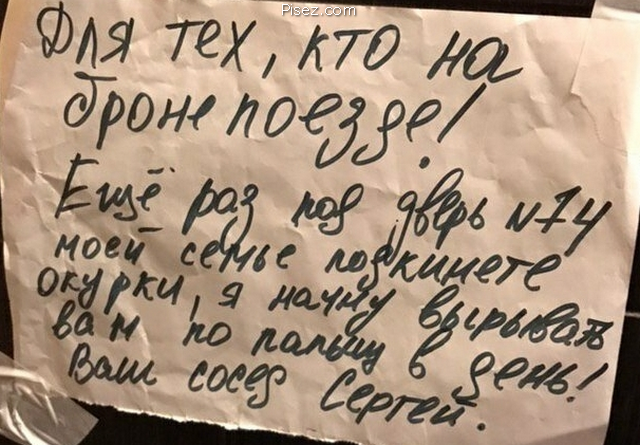 Pisez.com
Для тех, кто на
бронепоезде!
Ещё раз под дверь №74
моей семье подкинете
окурки, я начну вырывать
вам по пальцу в день!
Ваш сосед Сергей.